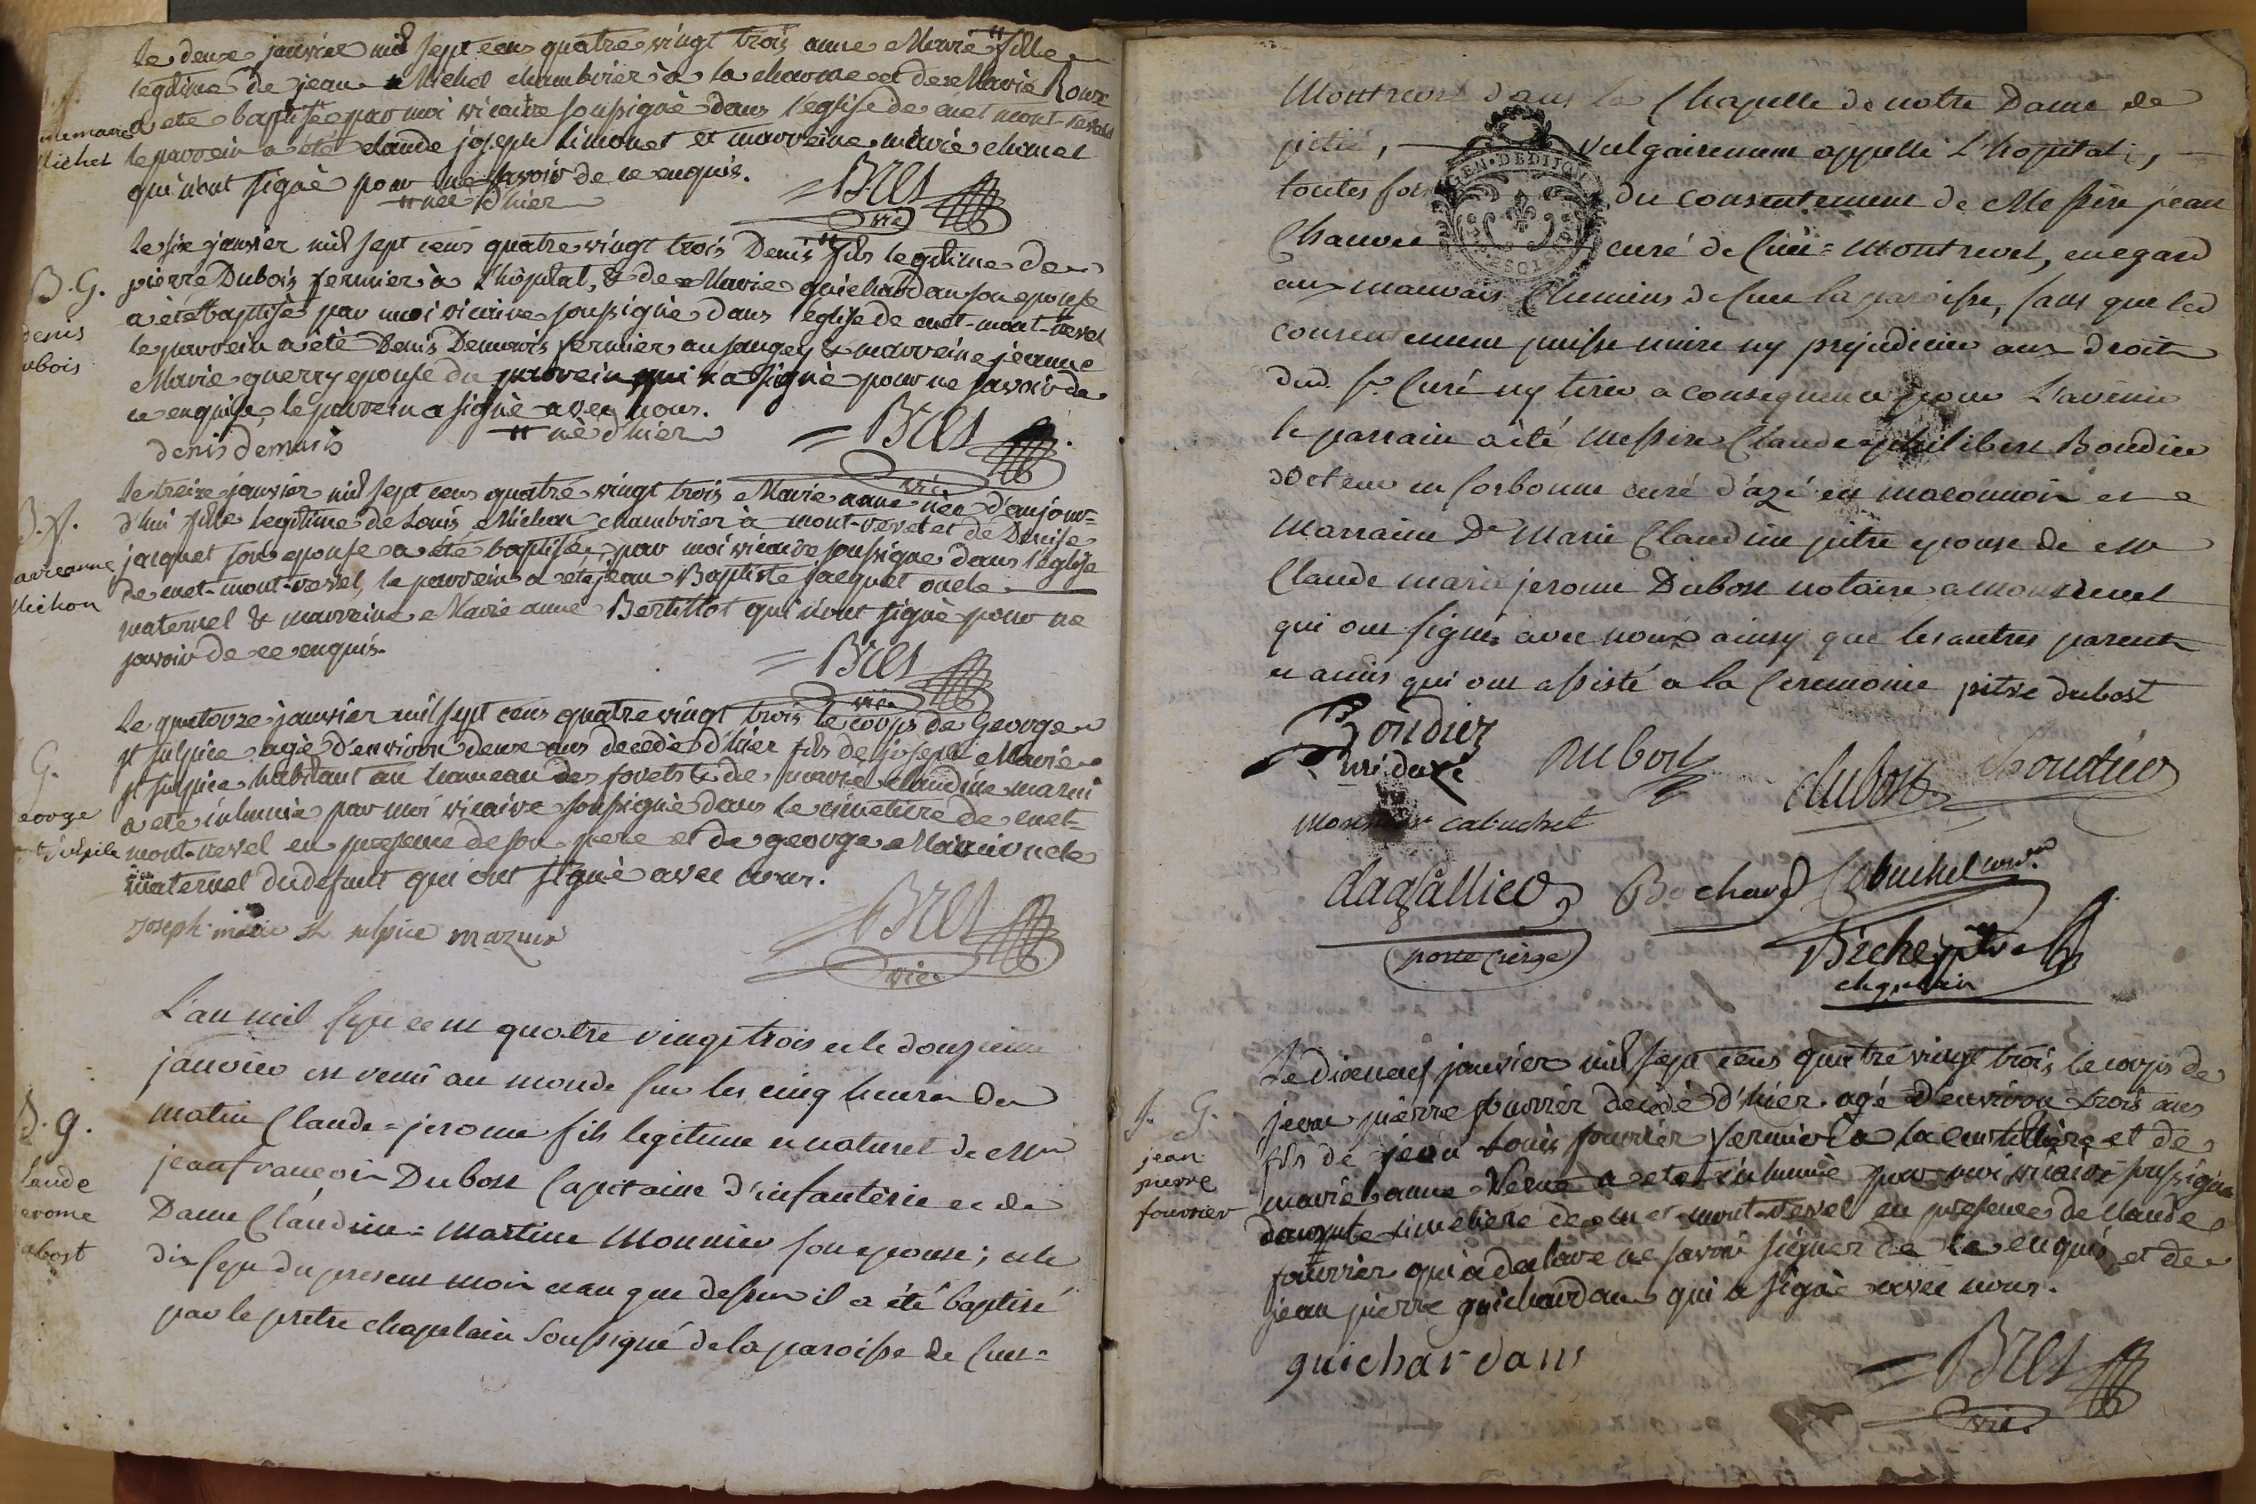 Le deux janvier mil sept cens quatre vingt trois anne Marie fille
legitime de jean Michel chambrier à la charme et de Marie Roux
a été baptisée par moi vicaire soussigné dans l'eglise de cuet mont-revel
le parrein a été claude joseph Limonet et marreine marie chanel
qui n'ont signé pour ne savoir de ce enquis.
née d'hier
Bret
vic
anne marie
Michel
Le six janvier mil sept cens quatre vingt trois Denis fils legitime de
pierre Dubois fermier à l'hôpital, & de Marie guichardan son epouse
a été baptisé par moi vicaire soussigné dans l'eglise de cuet-mont-revel
le parrein a été Denis Demaris fermier au saugey & marreine jeanne
Marie guerry epouse du parrein qui n'a signé pour ne savoir de
ce enquise, le parrein a signé avec nous.
né d'hier
denis demaris
Bret
vic
B. G.
denis
ubois
Le treize janvier mil sept cens quatre vingt trois Marie anne née d'aujour=
d'hui fille legitime de Louis Michon chambrier à mont-revel et de Denise
jacquet son epouse a été baptisée par moi vicaire soussigné dans l'eglise
de cuet-mont-revel, le parrein a été jean Baptiste jacquet oncle
maternel & marreine Marie anne Bertillot qui n'ont signé pour ne
savoir de ce enquis.
Bret
vic
B. f.
arie anne
Michon
Le quatorze janvier mil sept cens quatre vingt trois le corps de George
st sulpice agé d'environ deux ans decedé d'hier fils de joseph Marie
st sulpice habitant au hameau des forets & de marie claudine marui
a été inhumé par moi vicaire soussigné dans le cimetiere de cuet-
mont-revel en presence de son pere et de george Marui oncle
maternel du defunt qui ont signé avec nous.
Joseph marie st sulpice
Bret
vic
G.
eorge
t sulpice
L'an mil sept cent quatre vingt trois et le douzieme
janvier est venû au monde sur les cinq heures du
matin Claude=jerome fils legitime et naturel de Mre
jeanfrancois Dubost Capitaine d'infanterie et de
Dame Claudine=Martine Monnier son epouse; et le
dix sept du present mois et an que dessus il a été baptisé
par le prêtre chapelain soussigné de la paroisse de Cuet=
B. g.
laude
erome
ubost
Montrevel dans la Chapelle de notre Dame de
pitié, vulgairement appellé l'hopital,
toutes fois du consentement de Messire jean
Chanvet curé de Cuet=Montrevel, en egard
aux mauvais chemins de Cuet la paroisse, sans que led
consentement puisse nuire ny prejudicier aux droits
dud. sr. Curé ny tirer a consequence pour l'avenir
le parrain a été Messire Claude philibert Boudier
docteur en sorbonne curé d'azé en maconnois et
Marraine De Marie Claudine pitre epouse de Me
Claude marie jerome Dubost notaire a Montrevel
qui ont signés avec nous ainsy que les autres parents
et amis qui ont assisté a la Ceremonie pitre dubost
Boudier
curé d'azé
Dubost
dubost
Boudier
Monnier cabuchet
dagallier
(porte cierge)
Bochard
Cabuchet
Biche ptre
chapelain
Le dix neuf janvier mil sept cens quatre vingt trois le corps de
jean pierre fourrier decedé d'hier agé d'environ trois ans
fils de jean Louis fourrier fermier à la et de
marie anne Verne a été inhumé par moi vicaire soussigné
dans le cimetiere de cuet-mont-revel en presence de claude
fourrier qui a declaré ne savoir signer de ce enquis et de
jean pierre guichardan qui a signé avec nous.
guichardan
Bret
vic.
f. G.
jean
pierre
fourrier
GEN. DE DIJON